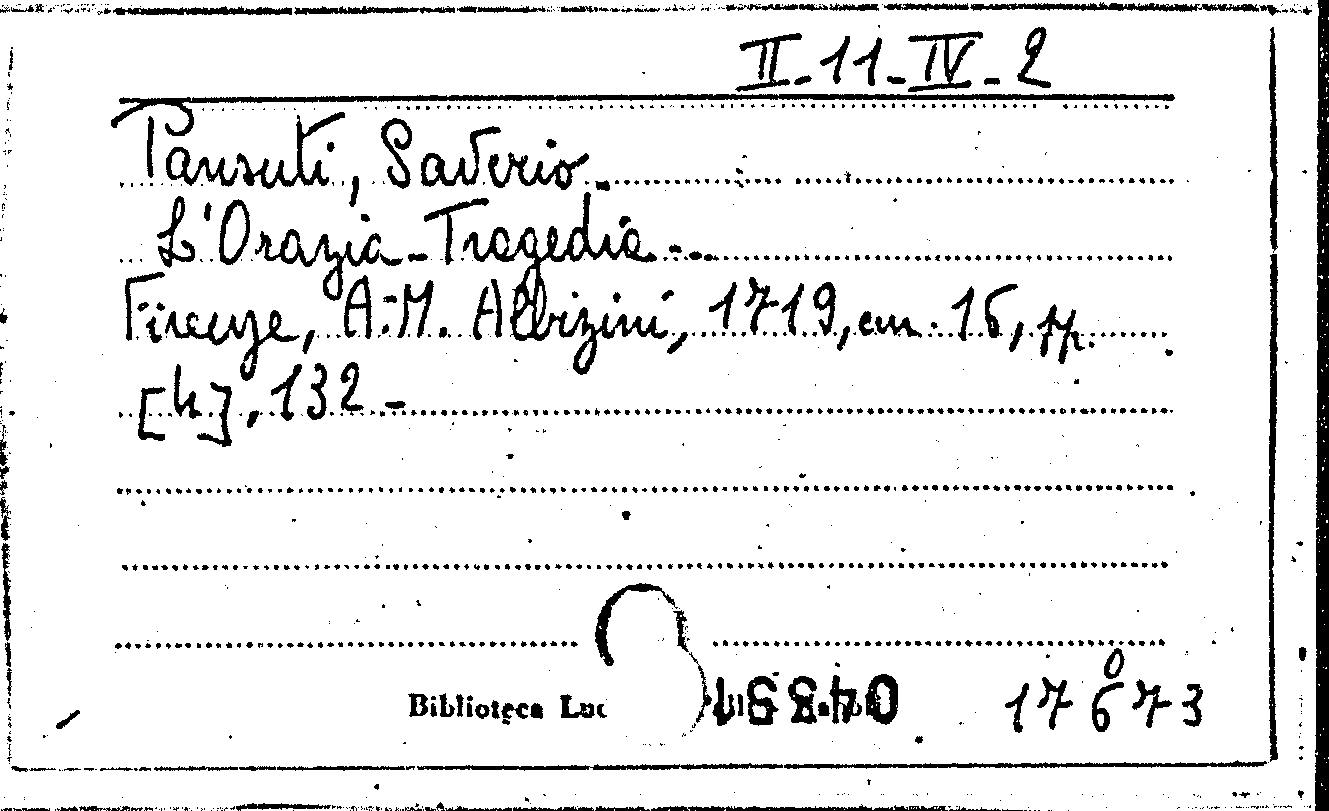 II-11-IV-2
Pansuti, Saverio.
L'Orazia-Tragedia-..
Firenze, A.M. Albizini, 1719, cm. 16, pp.
[4], 132 -
Biblioteca Luc
17673